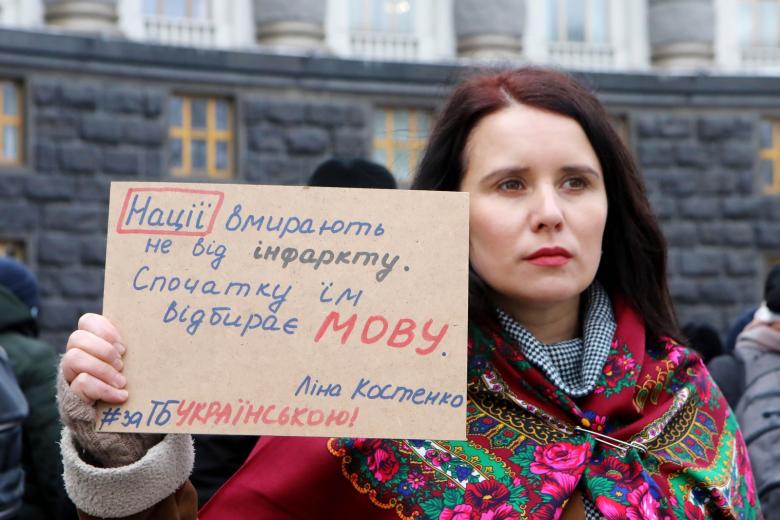 Нації вмирають
не від інфаркту.
Спочатку їм
відбирає МОВУ.
Ліна Костенко
#заТБУКРАЇНСЬКОЮ!